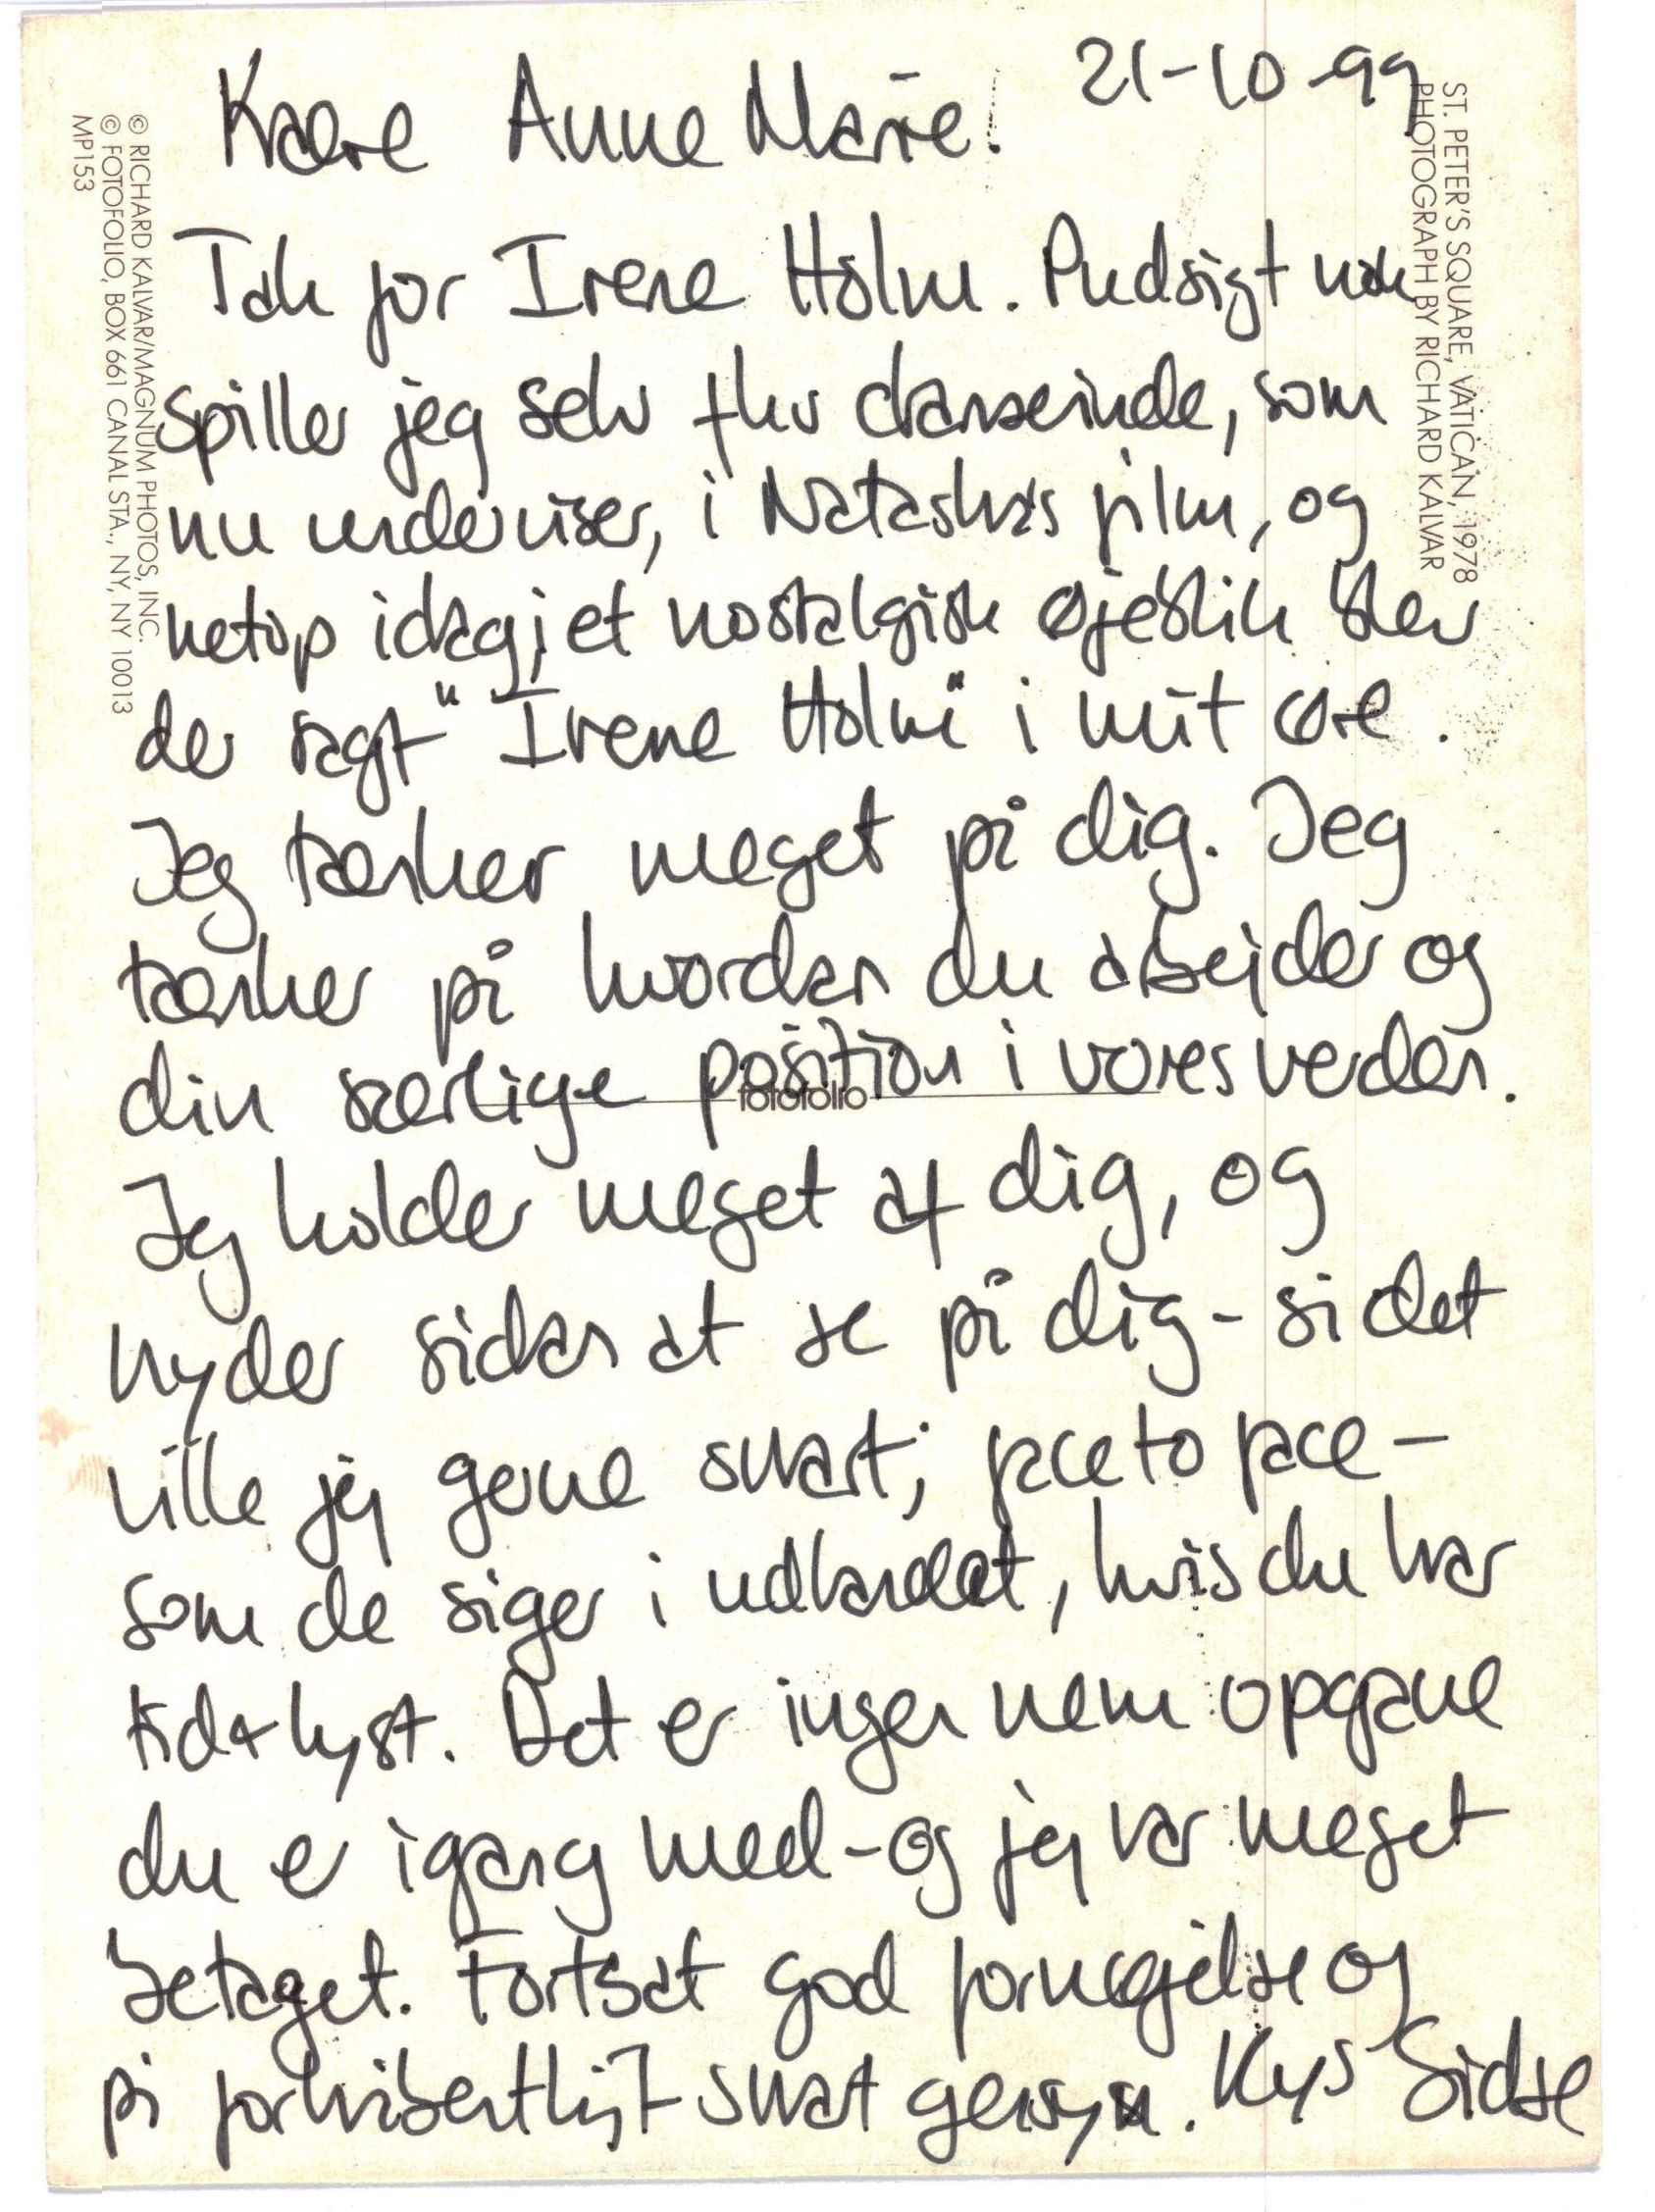 21-10-99
Kære Anne Marie!
Tak for Irene Holm. Pudsigt nok
spiller jeg selv fhv danserinde, som
nu underviser, i Natashas film, og
netop idag, i et nostalgisk øjeblik blev
der sagt "Irene Holm" i mit øre.
Jeg tænker meget på dig. Jeg
tænker på hvordan du arbejder og
din særlige position i vores verden.
Jeg holder meget af dig, og
nyder sådan at se på dig - så det
ville jeg gerne snart; face to face -
som de siger i udlandet, hvis du har
tid & lyst. Det er ingen nem opgave
du er igang med - og jeg var meget
betaget. Fortsat god fornøjelse og
på forhåbentligt snart gensyn. Kys Sidse
ST. PETER'S SQUARE, VATICAN, 1978
PHOTOGRAPH BY RICHARD KALVAR
© RICHARD KALVAR/MAGNUM PHOTOS, INC.
© FOTOFOLIO, BOX 661 CANAL STA., NY, NY 10013
MP153
fotofolio